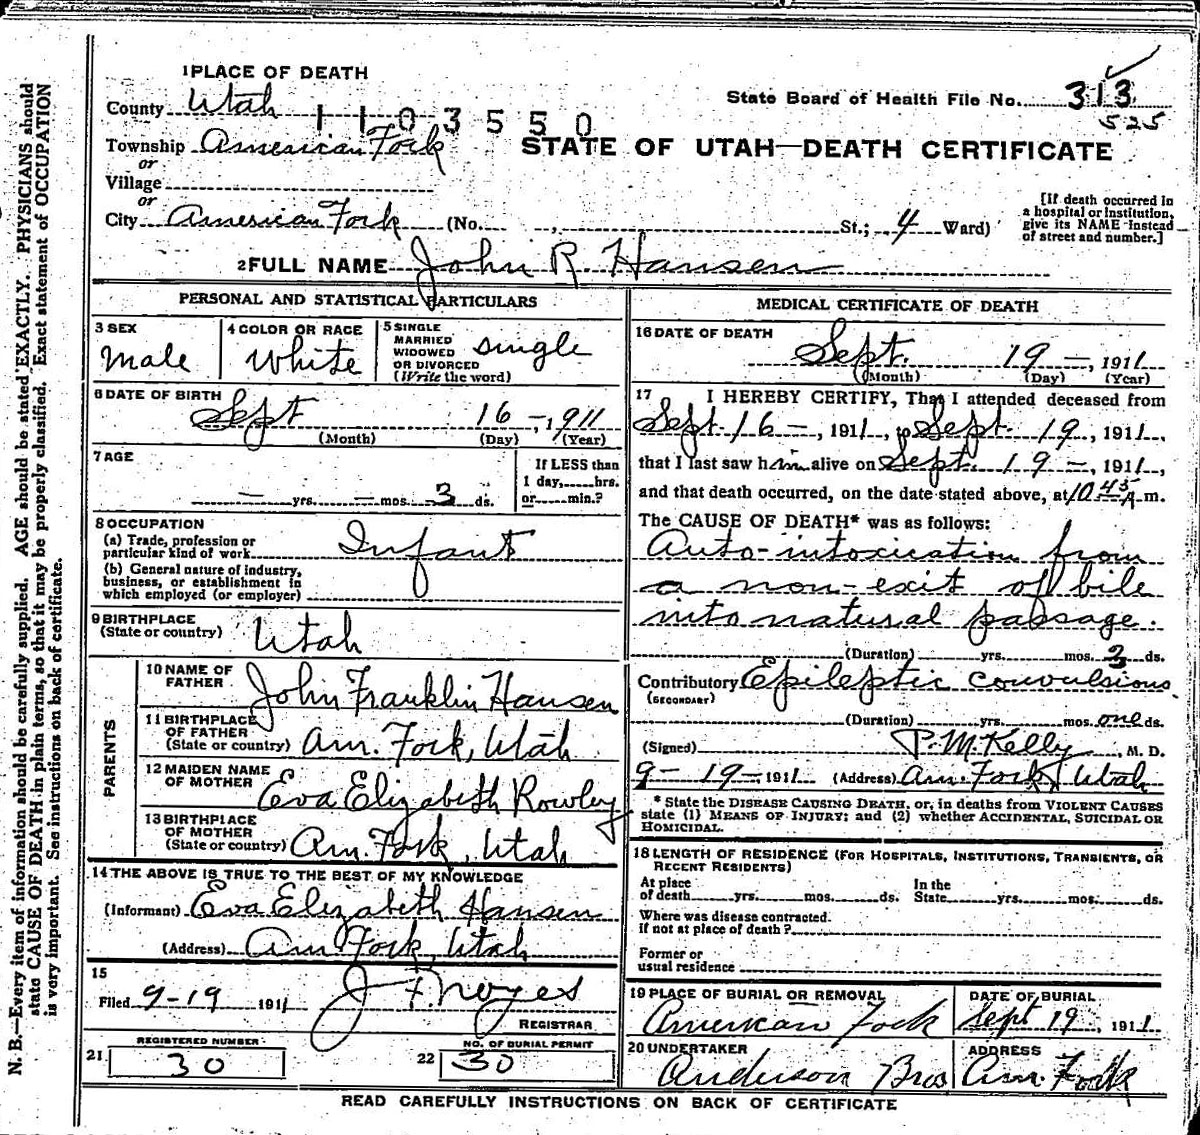 1 PLACE OF DEATH
County Utah
1 1 0 3 5 5 0
State Board of Health File No. 313
525
Township American Fork
STATE OF UTAH—DEATH CERTIFICATE
or
Village
or
City American Fork (No. , St.; 4 Ward)
[If death occurred in a hospital or institution, give its NAME instead of street and number.]
2 FULL NAME John R. Hansen
PERSONAL AND STATISTICAL PARTICULARS
3 SEX
Male
4 COLOR OR RACE
White
5 SINGLE
MARRIED
WIDOWED
OR DIVORCED
(Write the word)
single
6 DATE OF BIRTH
Sept 16 -, 1911
(Month) (Day) (Year)
7 AGE
— yrs. — mos. 3 ds.
If LESS than
1 day, hrs.
or min.?
8 OCCUPATION
(a) Trade, profession or
particular kind of work Infant
(b) General nature of industry,
business, or establishment in
which employed (or employer)
9 BIRTHPLACE
(State or country) Utah
PARENTS
10 NAME OF
FATHER John Franklin Hansen
11 BIRTHPLACE
OF FATHER
(State or country) Am. Fork, Utah
12 MAIDEN NAME
OF MOTHER Eva Elizabeth Rowley
13 BIRTHPLACE
OF MOTHER
(State or country) Am. Fork, Utah
14 THE ABOVE IS TRUE TO THE BEST OF MY KNOWLEDGE
(Informant) Eva Elizabeth Hansen
(Address) Am Fork, Utah
15
Filed 9-19 1911 J F. Noyes
REGISTRAR
21 REGISTERED NUMBER
30
22 NO. OF BURIAL PERMIT
30
MEDICAL CERTIFICATE OF DEATH
16 DATE OF DEATH
Sept. 19 -, 1911
(Month) (Day) (Year)
17 I HEREBY CERTIFY, That I attended deceased from
Sept. 16 -, 1911, to Sept. 19, 1911,
that I last saw him alive on Sept. 19 -, 1911,
and that death occurred, on the date stated above, at 10 45 A m.
The CAUSE OF DEATH* was as follows:
Auto-intoxication from
a non-exit of bile
into natural passage.
(Duration) yrs. mos. 3 ds.
Contributory Epileptic convulsions
(SECONDARY)
(Duration) yrs. mos. one ds.
(Signed) P. M. Kelly, M. D.
9-19-, 1911 (Address) Am. Fork, Utah
* State the DISEASE CAUSING DEATH, or, in deaths from VIOLENT CAUSES
state (1) MEANS OF INJURY; and (2) whether ACCIDENTAL, SUICIDAL OR
HOMICIDAL.
18 LENGTH OF RESIDENCE (FOR HOSPITALS, INSTITUTIONS, TRANSIENTS, OR
RECENT RESIDENTS)
At place
of death yrs. mos. ds.
In the
State yrs. mos. ds.
Where was disease contracted.
if not at place of death?
Former or
usual residence
19 PLACE OF BURIAL OR REMOVAL
American Fork
DATE OF BURIAL
Sept 19, 1911
20 UNDERTAKER
Anderson Bros
ADDRESS
Am. Fork
READ CAREFULLY INSTRUCTIONS ON BACK OF CERTIFICATE
N. B.—Every item of information should be carefully supplied. AGE should be stated EXACTLY. PHYSICIANS should
state CAUSE OF DEATH in plain terms, so that it may be properly classified. Exact statement of OCCUPATION
is very important. See instructions on back of certificate.